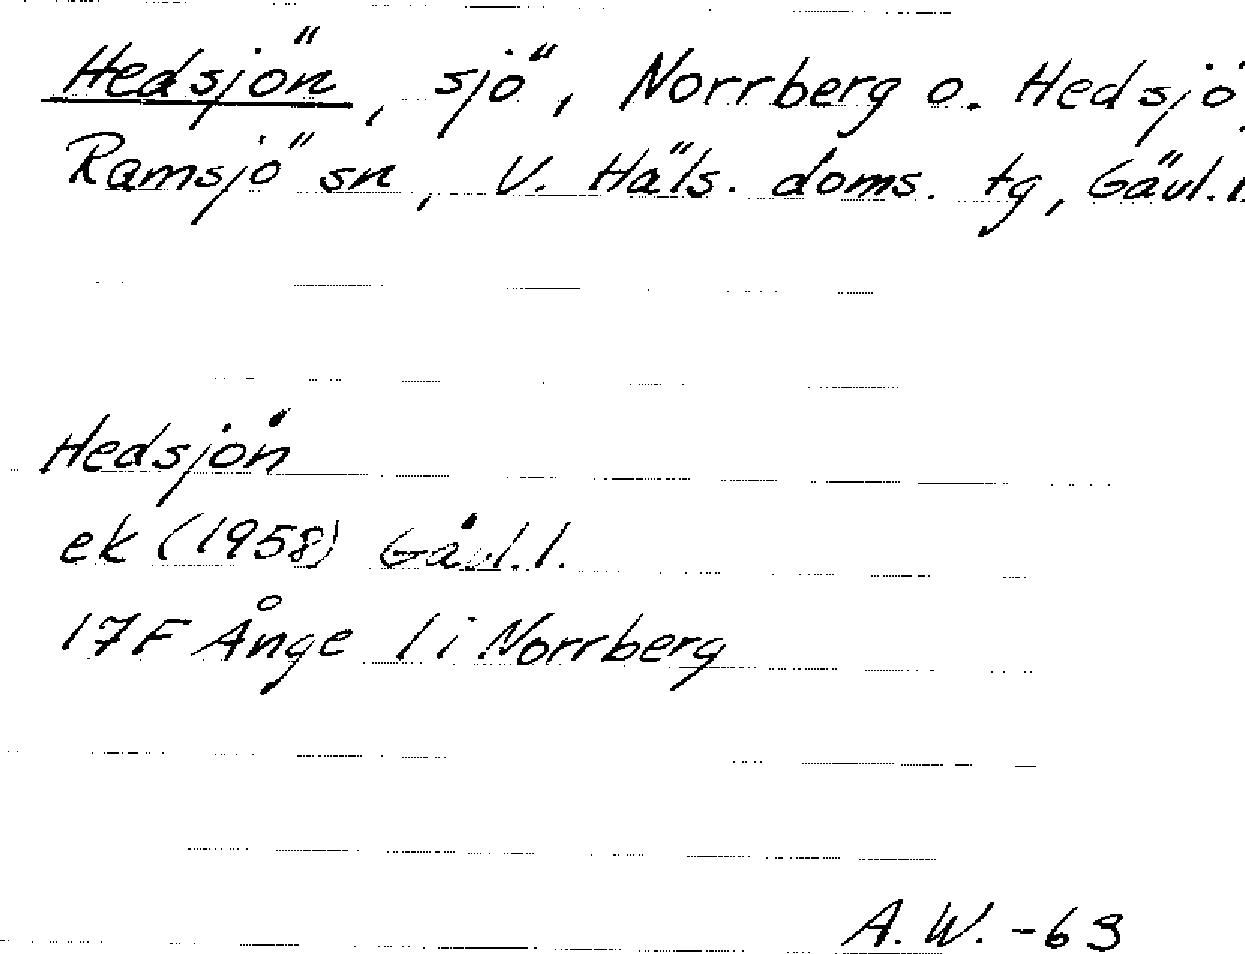 Hedsjön, sjö, Norrberg o. Hedsjö,
Ramsjö sn, V. Häls. doms. tg, Gävl.l.
Hedsjön
ek (1958) Gävl.l.
17F Ånge 1 i Norrberg
A.W. -63